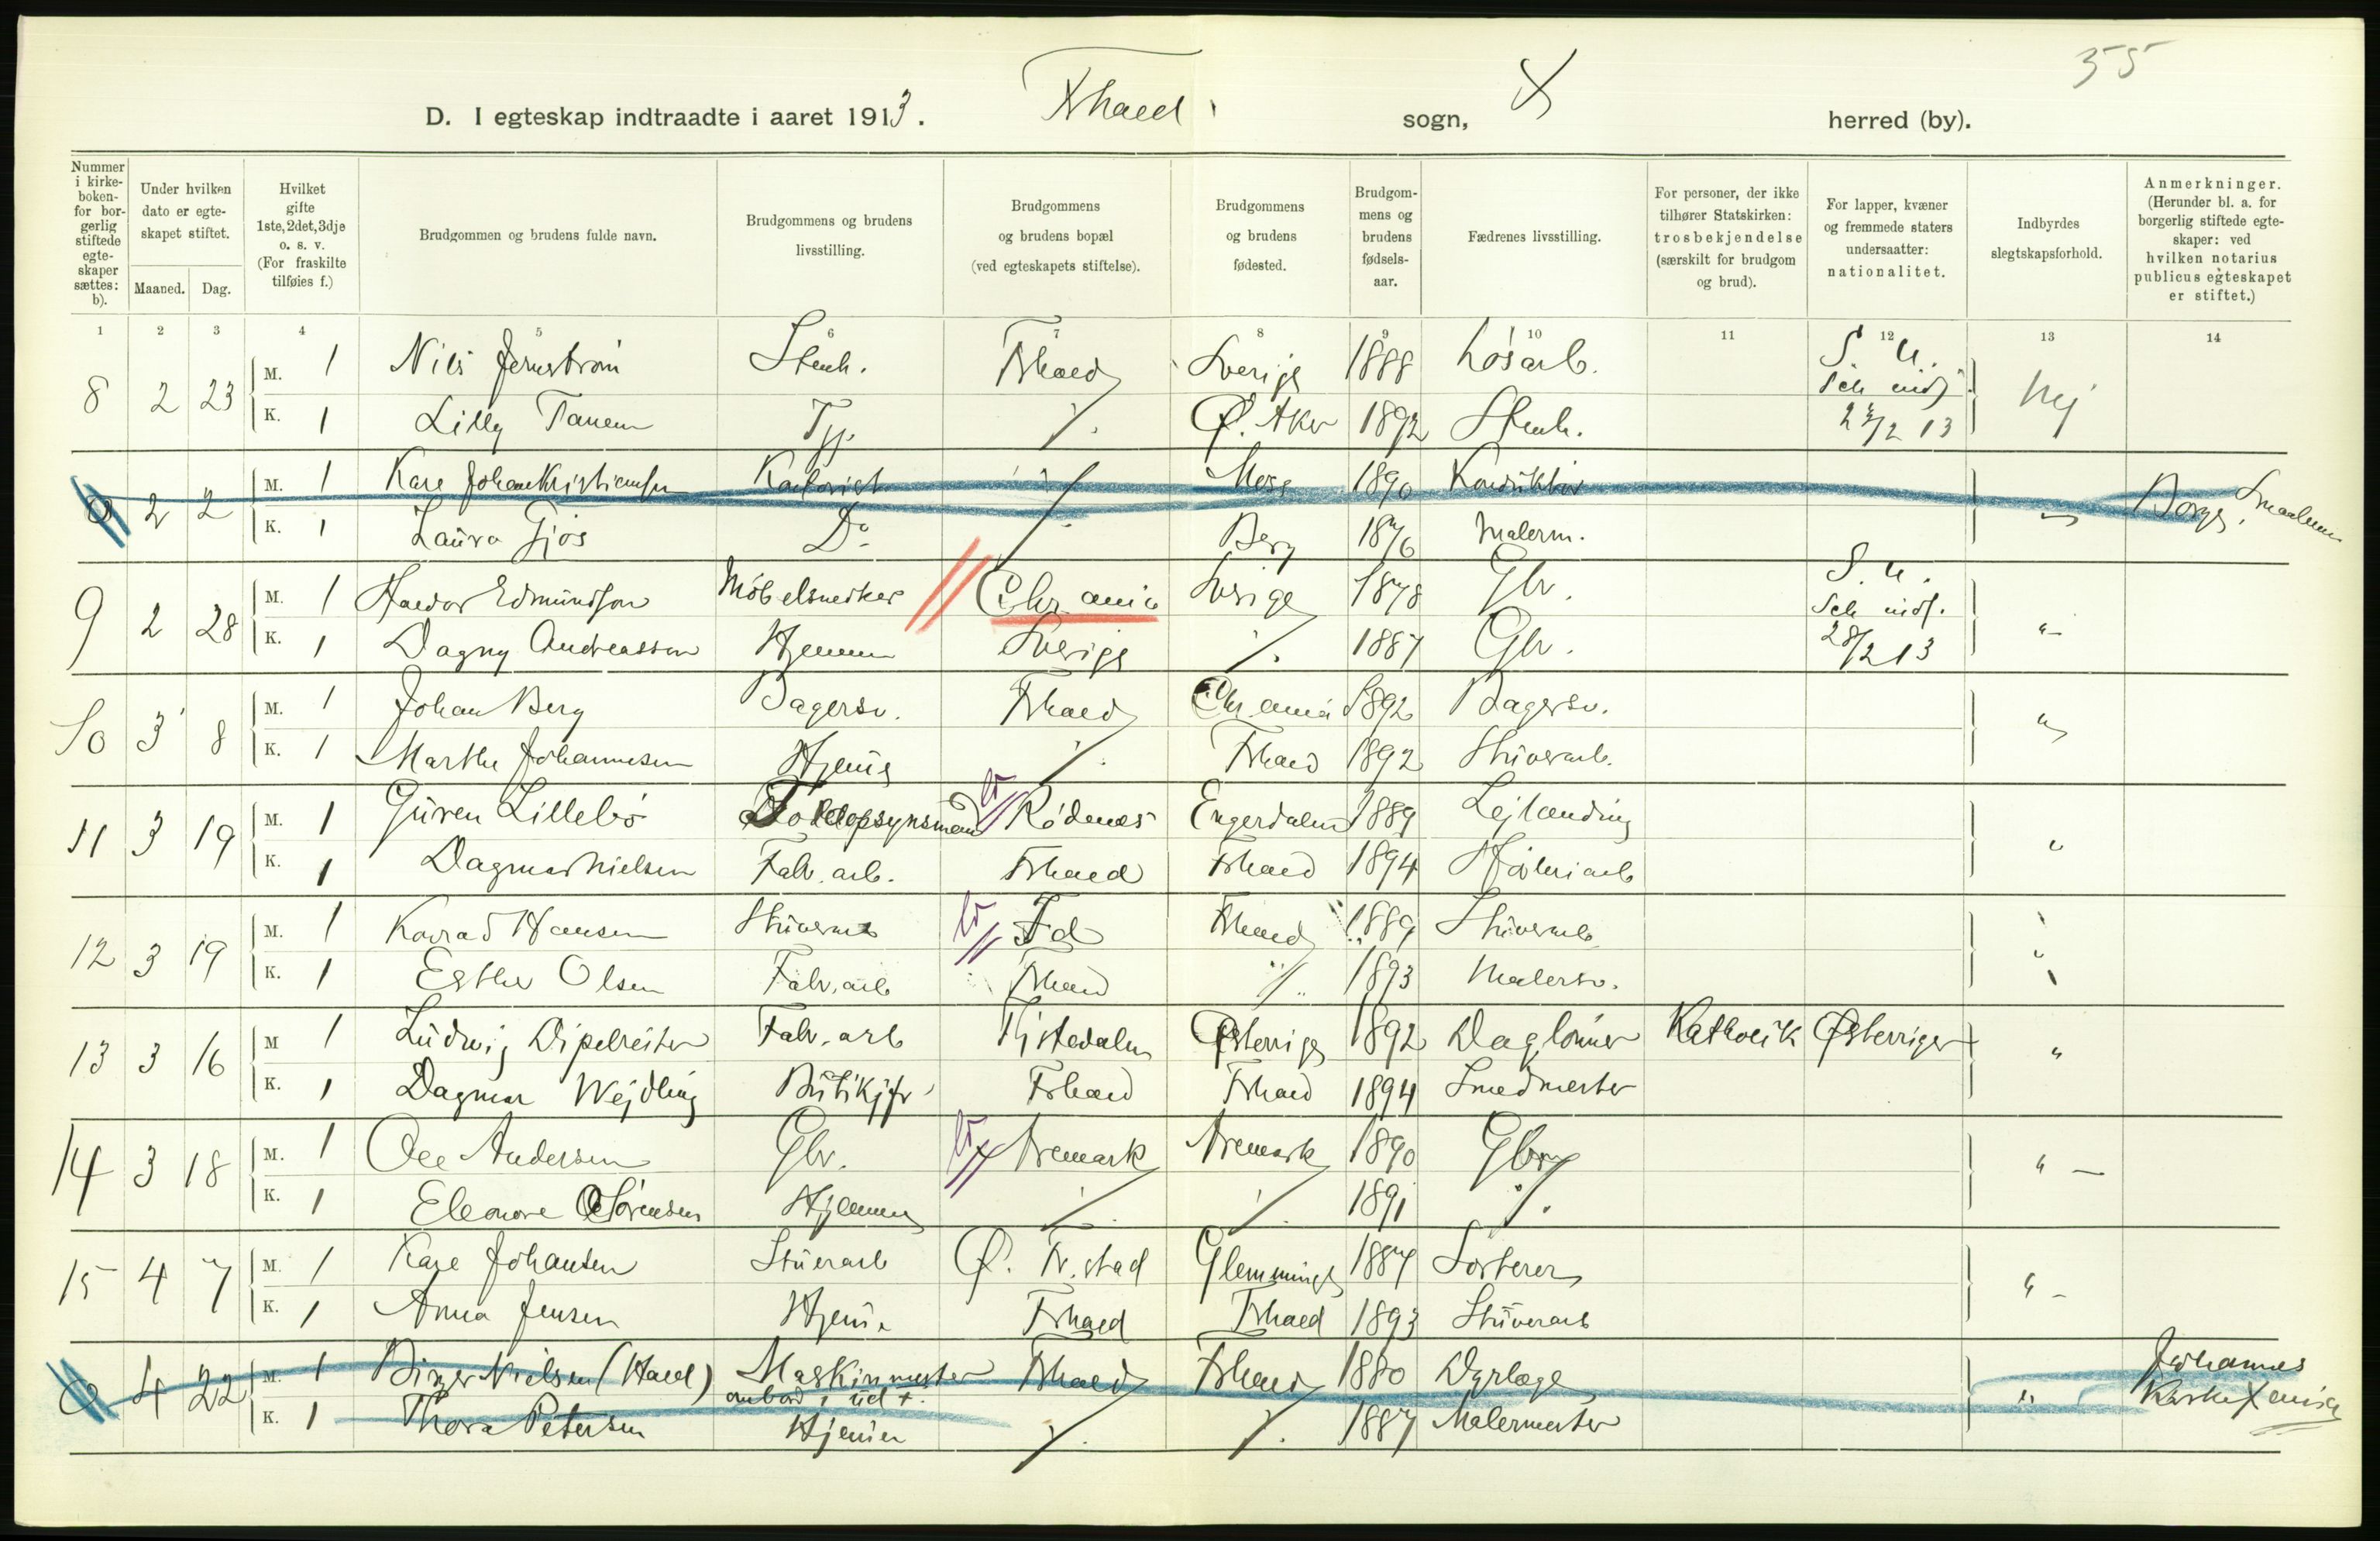 35
D. I egteskap indtraadte i aaret 1913. Frhald sogn, herred (by).
Nummer i kirkeboken- for borgerlig stiftede egteskaper sættes: b).
Under hvilken dato er egteskapet stiftet.
Maaned. Dag.
Hvilket gifte 1ste, 2det, 3dje o. s. v. (For fraskilte tilføies f.)
Brudgommen og brudens fulde navn.
Brudgommens og brudens livsstilling.
Brudgommens og brudens bopæl (ved egteskapets stiftelse).
Brudgommens og brudens fødested.
Brudgommens og brudens fødselsaar.
Fædrenes livsstilling.
For personer, der ikke tilhører Statskirken: trosbekjendelse (særskilt for brudgom og brud).
For lapper, kvæner og fremmede staters undersaatter: nationalitet.
Indbyrdes slegtskapsforhold.
Anmerkninger. (Herunder bl. a. for borgerlig stiftede egteskaper: ved hvilken notarius publicus egteskapet er stiftet.)
1 2 3 4 5 6 7 8 9 10 11 12 13 14
8 2 23 M. 1 Nils Jernstrøm Stenh. Frhald Sverige 1888 Løsarb. S. U. Nej
K. 1 Lilly Tanem Typ. Ø. Aker 1892 Stenh. 22/2 13
2 2 M. 1 Karl Johan Kristiansen Moss 1890 Konduktør Borge, Smaalenene
K. 1 Laura Gjøs Do Berg 1876 Malerm.
9 2 28 M. 1 Haldor Edmundson Møbelsnedker Chr.ania Sverige 1878 Gbr. S. U.
K. 1 Dagny Andreassen Hjemme Sverige 1887 Gbr. 28/2 13
10 3 8 M. 1 Johan Berg Bagersv. Frhald Chr.ania 1892 Bagersv.
K. 1 Marthe Johannesen Hjemme Frhald 1892 Stuverarb.
11 3 19 M. 1 Guren Lillebø Toldopsynsmand Rødenes Engerdalen 1889 Lejlænding
K. 1 Dagmar Nielsen Fabr. arb. Frhald Frhald 1894 Høvleriarb
12 3 19 M. 1 Konrad Hansen Stuverarb Id Frhald 1889 Stuverarb
K. 1 Esther Olsen Fabr. arb Frhald 1893 Malersv.
13 3 16 M 1 Ludwig Dipelreiter Fabr. arb Tistedalen Østerrige 1892 Dagløner Katholik Østerriger
K. 1 Dagmar Wejdling Butikjfr Frhald Frhald 1894 Smedmester
14 3 18 M. 1 Ole Andersen Gbr. Aremark Aremark 1890 Gbr
K. 1 Eleonore Sørensen Hjemme 1891
15 4 7 M. 1 Karl Johansen Stuerarb Ø. Fr.stad Glemminge 1887 Sorterer
K. 1 Anna Jensen Hjemme Frhald Frhald 1893 Stuverarb
4 22 M. 1 Birger Nielsen (Hald) Maskinmester Frhald Frhald 1880 Dyrlæge Johannes
K. 1 Thora Petersen ombord i Hjemme 1887 Malermester Kirke Xania